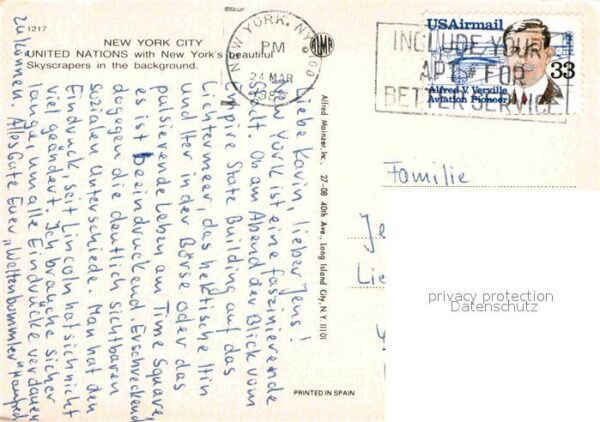 1217
NEW YORK CITY
UNITED NATIONS with New York's beautiful
Skyscrapers in the background.
NEW YORK, NY
PM
24 MAR
INCLUDE YOUR
APT # FOR
BETTER SERVICE
USAirmail
33
Alfred V. Verville
Aviation Pioneer
Liebe Karin, lieber Jens!
New York ist eine faszinierende
Stadt. Ob am Abend der Blick vom
Empire State Building auf das
Lichtermeer, das hektische Hin
und Her in der Börse oder das
pulsierende Leben am Time Square,
es ist beeindruckend. Erschreckend
dagegen die deutlich sichtbaren
Sozialen Unterschiede. Man hat den
Eindruck, seit Lincoln hat sich nicht
viel geändert. Ich brauche sicher
lange, um alle Eindrücke verdauen
zu können. Alles Gute Euer „Weltenbummler" Manfred
Alfred Mainzer, Inc., 27-08 40th Ave., Long Island City, N.Y. 11101
PRINTED IN SPAIN
Familie
Je
Lie
privacy protection
Datenschutz